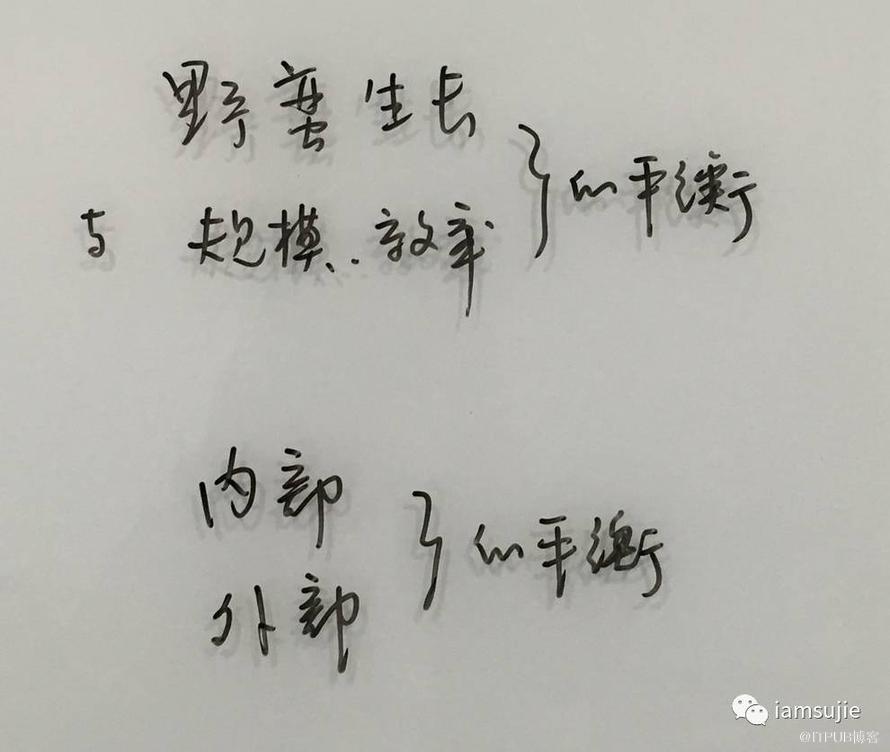 野蛮生长
与 规模、效率 } 的平衡
内部
外部 } 的平衡
iamsujie
@ITPUB博客